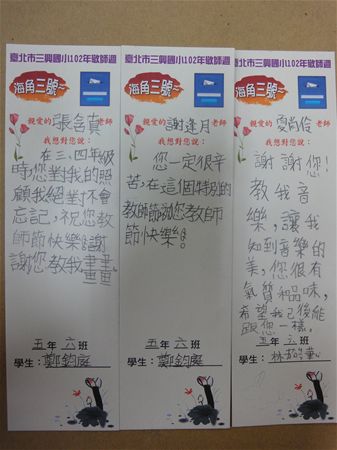 臺北市三興國小102年敬師週
海角三號~
親愛的張含真老師
我想對您說：
在三、四年級
時您對我的照
顧我絕對不會
忘記，祝您教
師節快樂！謝
謝您教我畫畫
五年六班
學生：鄭鈞庭
臺北市三興國小102年敬師週
海角三號~
親愛的謝逢月老師
我想對您說：
您一定很辛
苦，在這個特別的
教師節祝您教師
節快樂！
五年六班
學生：鄭鈞庭
臺北市三興國小102年敬師週
海角三號~
親愛的夏尚伶老師
我想對您說：
謝謝您！
教我音
樂，讓我
知到音樂的
美，您很有
氣質和品味，
希望我已後能
跟您一樣。
五年六班
學生：林